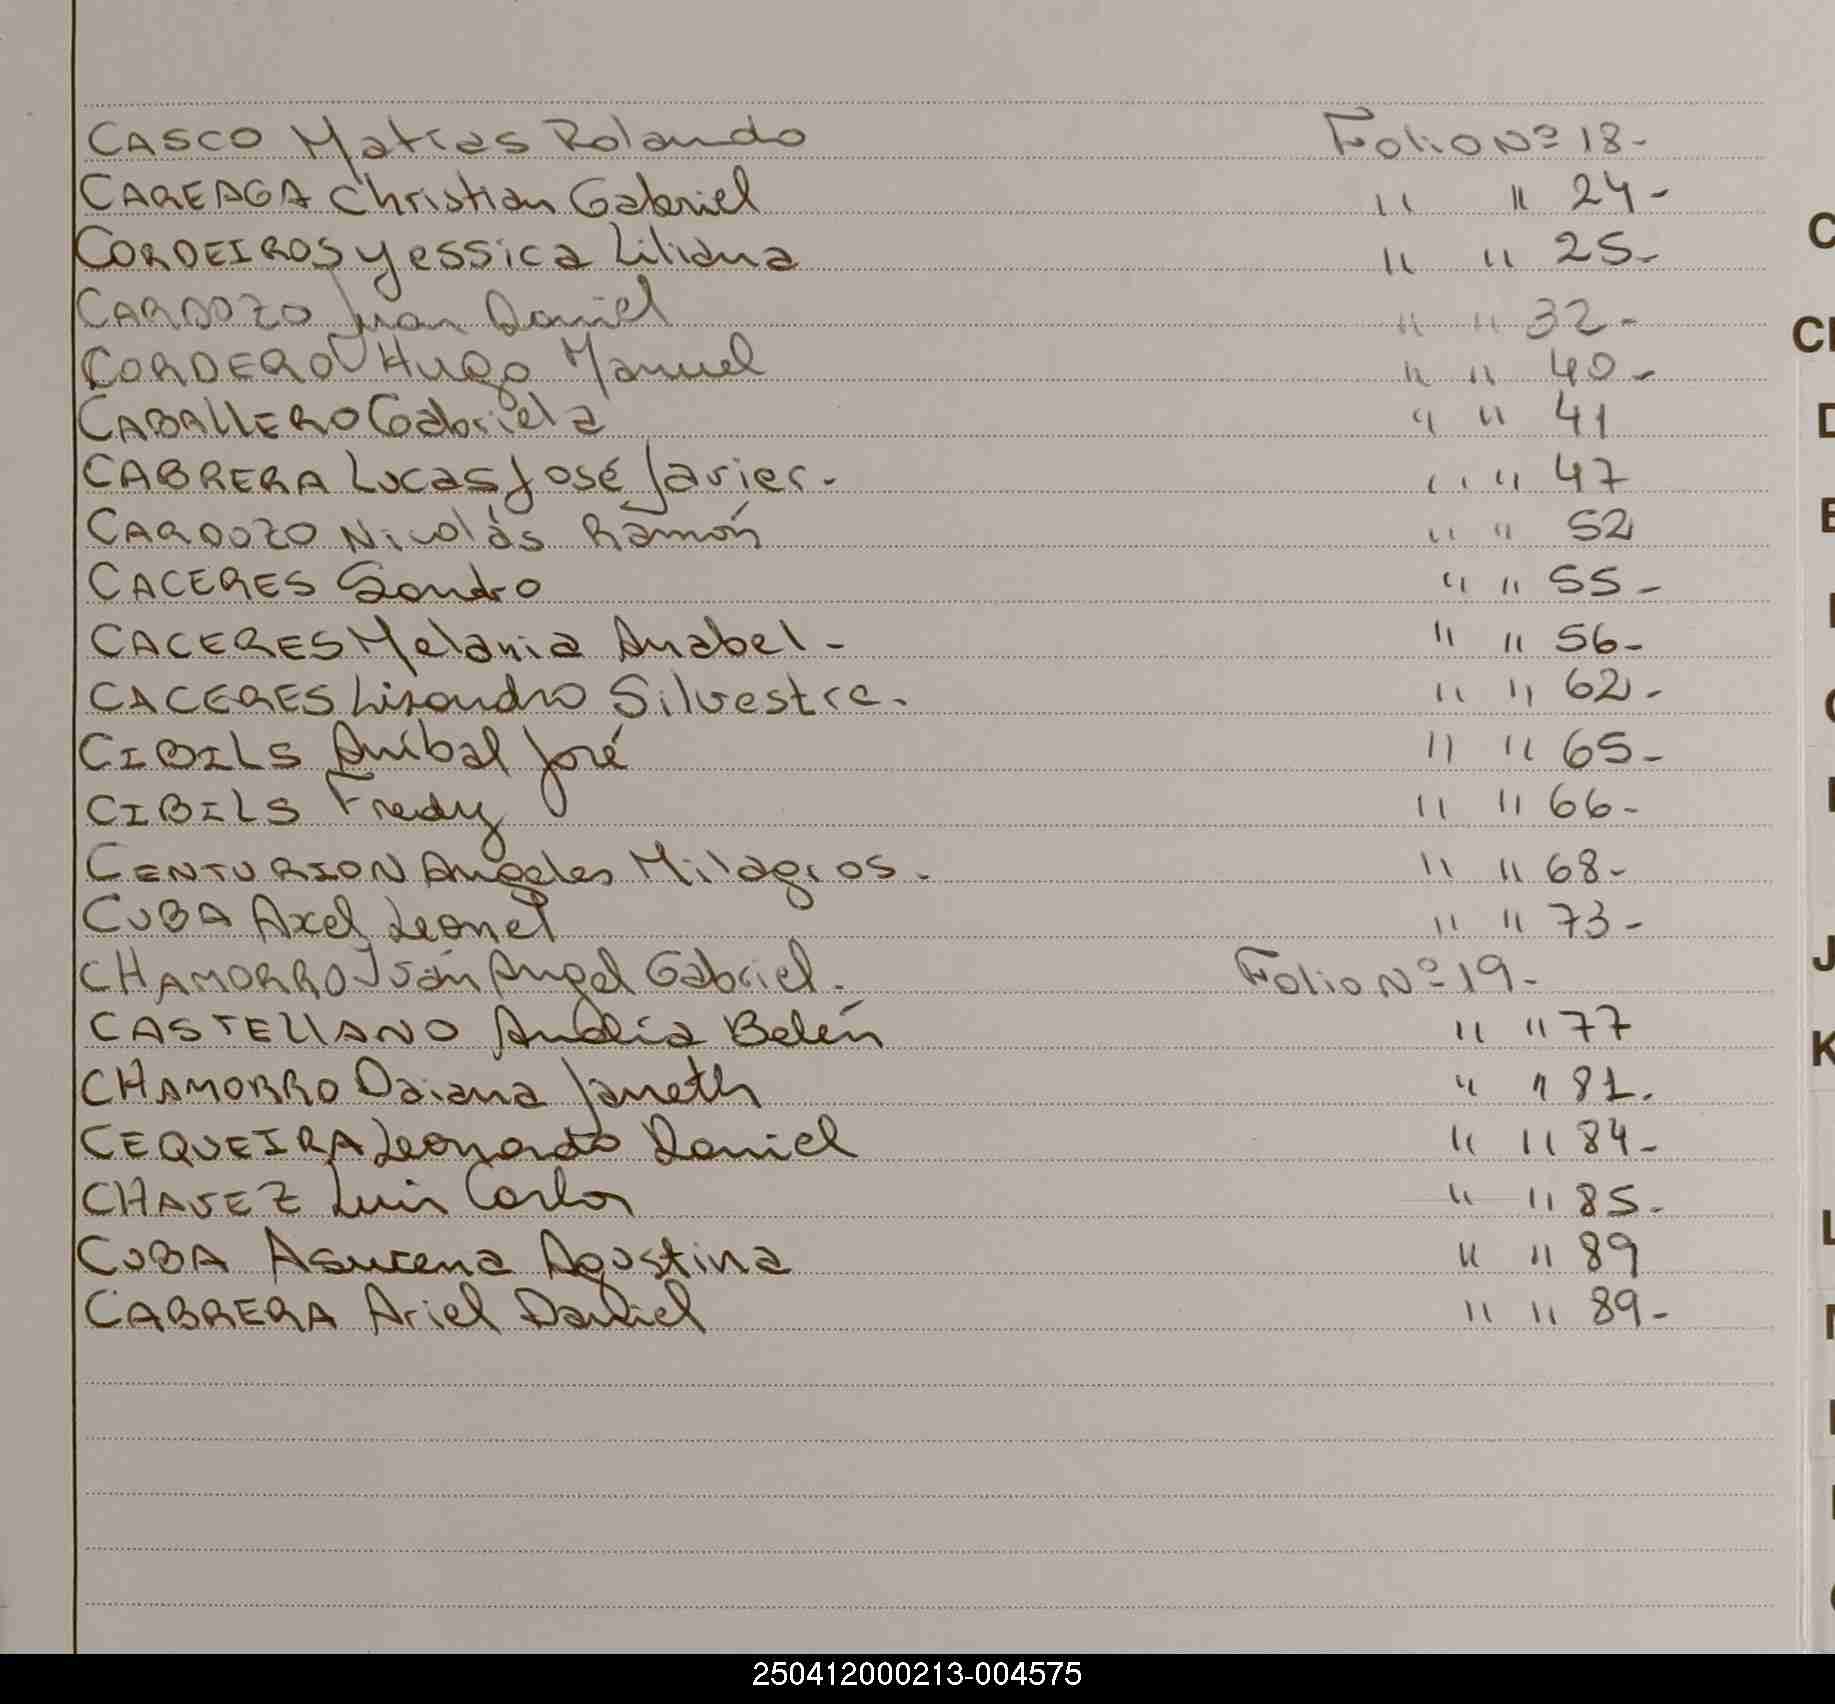 CASCO Matias Rolando Folio Nº 18-
CAREAGA Christian Gabriel " " 24-
CORDEIROS Yessica Liliana " " 25-
CARDOZO Juan Daniel " " 32-
CORDERO Hugo Manuel " " 40-
CABALLERO Gabriela " " 41
CABRERA Lucas José Javier- " " 47
CARDOZO Nicolás Ramón " " 52
CACERES Sandro " " 55-
CACERES Melania Anabel- " " 56-
CACERES Lisandro Silvestre- " " 62-
CIBILS Aníbal José " " 65-
CIBILS Fredy " " 66-
CENTURION Angeles Milagros- " " 68-
CUBA Axel Leonel " " 73-
CHAMORRO Iván Angel Gabriel- Folio Nº 19-
CASTELLANO Analía Belén " " 77
CHAMORRO Daiana Janeth " " 81.
CEQUEIRA Leonardo Daniel " " 84-
CHAVEZ Luis Carlos " " 85-
CUBA Asucena Agostina " " 89
CABRERA Ariel Daniel " " 89-
C
D
J
K
250412000213-004575